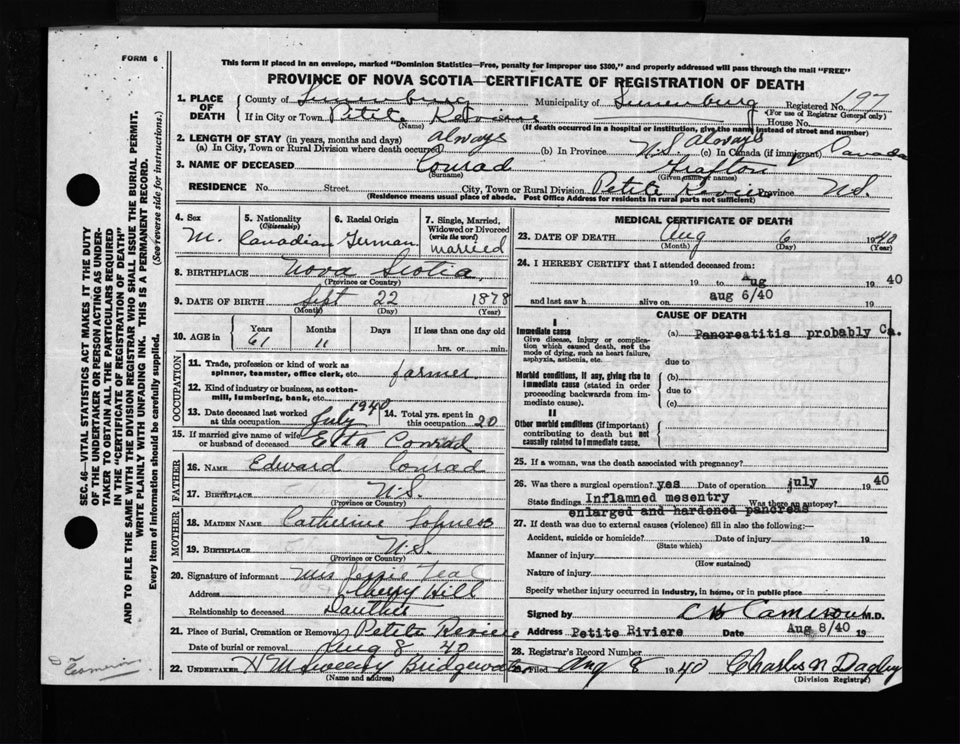 FORM 6
This form if placed in an envelope, marked "Dominion Statistics—Free, penalty for improper use $300," and properly addressed will pass through the mail "FREE"
PROVINCE OF NOVA SCOTIA—CERTIFICATE OF REGISTRATION OF DEATH
SEC. 46—VITAL STATISTICS ACT MAKES IT THE DUTY
OF THE UNDERTAKER OR PERSON ACTING AS UNDER-
TAKER TO OBTAIN ALL THE PARTICULARS REQUIRED
IN THE "CERTIFICATE OF REGISTRATION OF DEATH"
AND TO FILE THE SAME WITH THE DIVISION REGISTRAR WHO SHALL ISSUE THE BURIAL PERMIT.
WRITE PLAINLY WITH UNFADING INK. THIS IS A PERMANENT RECORD.
Every item of information should be carefully supplied. (See reverse side for instructions.)
1. PLACE OF DEATH County of Lunenburg Municipality of Lunenburg Registered No. 197
(For use of Registrar General only)
If in City or Town Petite Riviere House No.
(Name) (If death occurred in a hospital or institution, give the name instead of street and number)
2. LENGTH OF STAY (in years, months and days)
(a) In City, Town or Rural Division where death occurred always (b) In Province N.S. always (c) In Canada (if immigrant) Canada
3. NAME OF DECEASED Conrad Grafton
(Surname) (Given name or names)
RESIDENCE No. Street City, Town or Rural Division Petite Riviere Province N.S.
(Residence means usual place of abode. Post Office Address for residents in rural parts not sufficient)
4. Sex M. 5. Nationality (Citizenship) Canadian 6. Racial Origin German 7. Single, Married, Widowed or Divorced (write the word) married
8. BIRTHPLACE Nova Scotia
(Province or Country)
9. DATE OF BIRTH Sept 22 1878
(Month) (Day) (Year)
10. AGE in Years 61 Months 11 Days If less than one day old hrs. or min.
OCCUPATION
11. Trade, profession or kind of work as spinner, teamster, office clerk, etc. farmer
12. Kind of industry or business, as cotton-mill, lumbering, bank, etc.
13. Date deceased last worked at this occupation July 1940 14. Total yrs. spent in this occupation 20
15. If married give name of wife or husband of deceased Etta Conrad
FATHER
16. NAME Edward Conrad
17. BIRTHPLACE N.S.
(Province or Country)
MOTHER
18. MAIDEN NAME Catherine
19. BIRTHPLACE N.S.
(Province or Country)
20. Signature of informant Mrs Jessie Teal
Address Cherry Hill
Relationship to deceased Daughter
21. Place of Burial, Cremation or Removal Petite Riviere
Date of burial or removal Aug 8 40
22. UNDERTAKER H M Sweeny Bridgewater
(Name and address)
MEDICAL CERTIFICATE OF DEATH
23. DATE OF DEATH Aug 6 1940
(Month) (Day) (Year)
24. I HEREBY CERTIFY that I attended deceased from:
19 to Aug 19 40
and last saw h alive on aug 6/40 19
CAUSE OF DEATH
I
Immediate cause
Give disease, injury or complication which caused death, not the mode of dying, such as heart failure, asphyxia, asthenia, etc.
(a) Pancreatitis probably Ca.
due to
Morbid conditions, if any, giving rise to immediate cause (stated in order proceeding backwards from immediate cause).
(b)
due to
(c)
II
Other morbid conditions (if important) contributing to death but not causally related to immediate cause.
25. If a woman, was the death associated with pregnancy?
26. Was there a surgical operation? yes Date of operation july 19 40
State findings Inflamned mesentry Was there an autopsy?
enlarged and hardened pancreas
27. If death was due to external causes (violence) fill in also the following:—
Accident, suicide or homicide? Date of injury 19
(State which)
Manner of injury
(How sustained)
Nature of injury
Specify whether injury occurred in industry, in home, or in public place
Signed by Cameron M.D.
Address Petite Riviere Date Aug 8/40 19
28. Registrar's Record Number
Filed Aug 8 1940 Charles N Dagley
(Division Registrar)